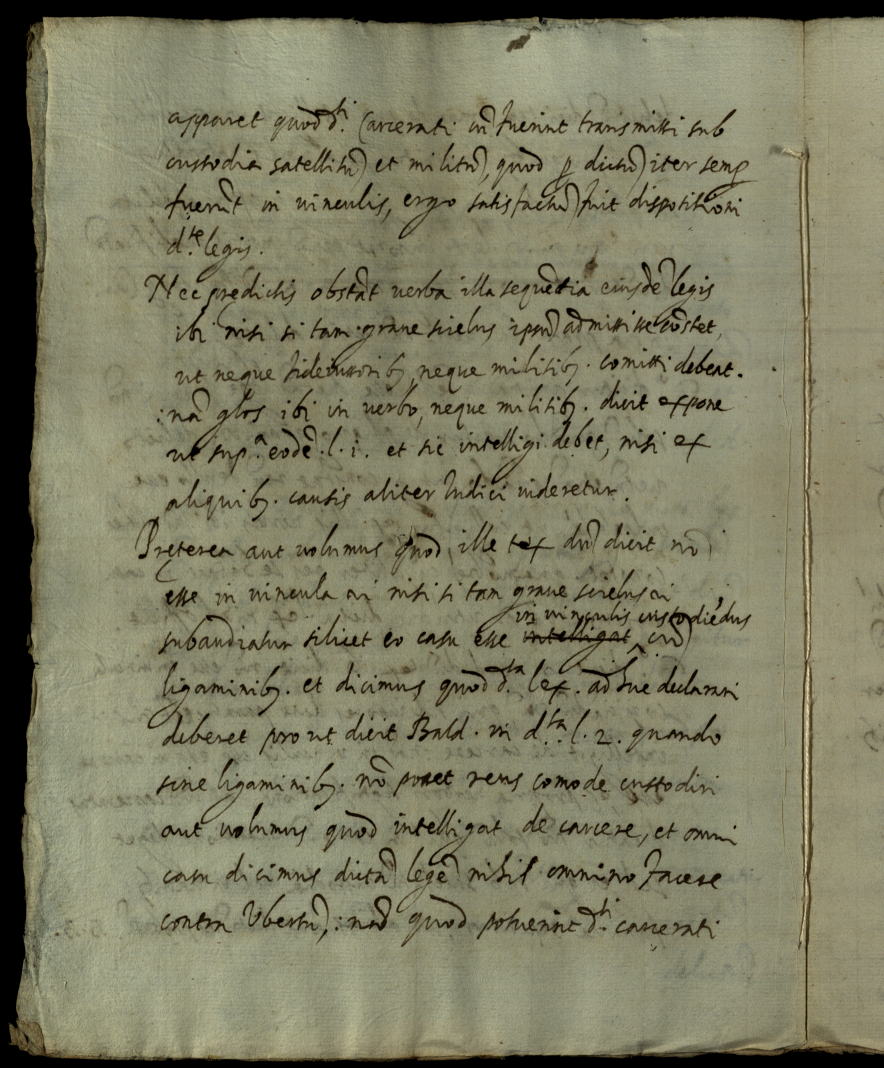 apparet quod d.ti Carcerati cũ fuerint transmissi sub
custodia satellitũ et militũ, quod p dictũ iter semp
fuerũt in vinculis, ergo satisfactũ fuit dispositioni
d.te legis.
Nec prędictis obstãt verba illa sequẽtia eiusdẽ legis
ibi nisi si tam grave scelus ipsũ admisisse cõstet,
ut neque fideiussorib9, neque militib9. comitti debeat.
: nã glos ibi in verbo, neque militib9. dicit expone
ut sup.a eodẽ. l. i. et sic intelligi debet, nisi ex
aliquib9. causis aliter Iudici videretur.
Pręterea aut volumus quod ille tex dũ dicit nõ
esse in vincula nisi si tam grave scelus
in vinculis custodiẽdus
subaudiatur silicet eo casu esse intelligat, cũ
ligaminib9. et dicimus quod d.ta lex. adhuc declarari
deberet prout dicit Bald. in d.ta l. 2. quando
sine ligaminib9. nõ posset reus comode custodiri
aut volumus quod intelligat de carcere, et omni
casu dicimus dictã legẽ nihil omnino facere
contra Ubertũ, : nã quod potuerint d.ti carcerati